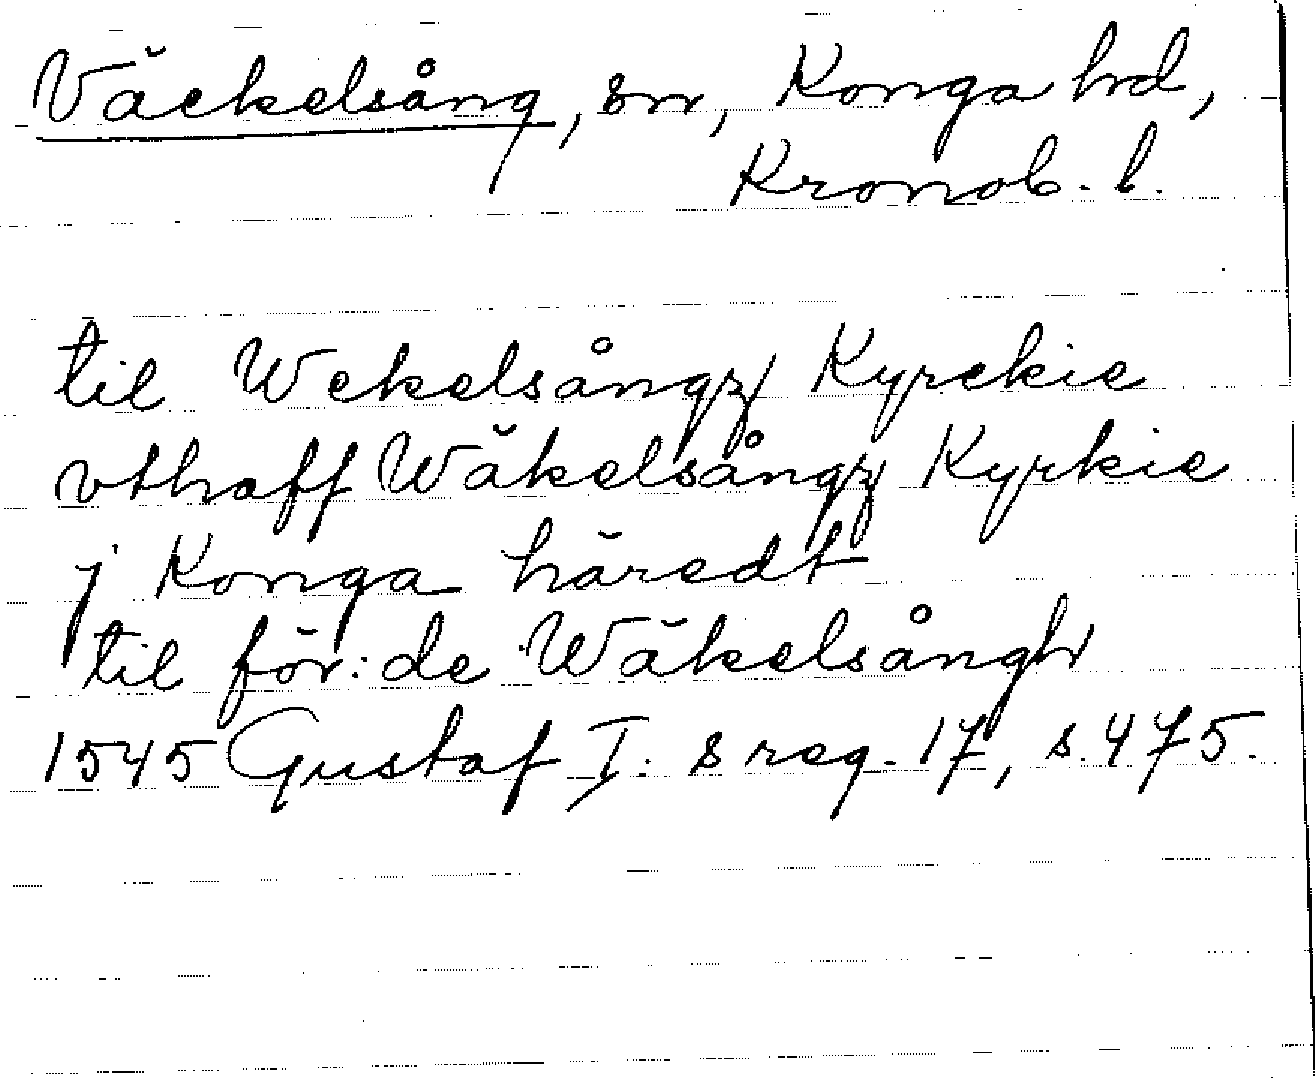 Väckelsång, sn, Konga hd,
Kronob. l.
til Wekelsångz Kyrckie
vthaff Wäkelsångz Kyrkie
j Konga häredt
til för:de Wäkelsångh
1545 Gustaf I:s reg. 17, s. 475.